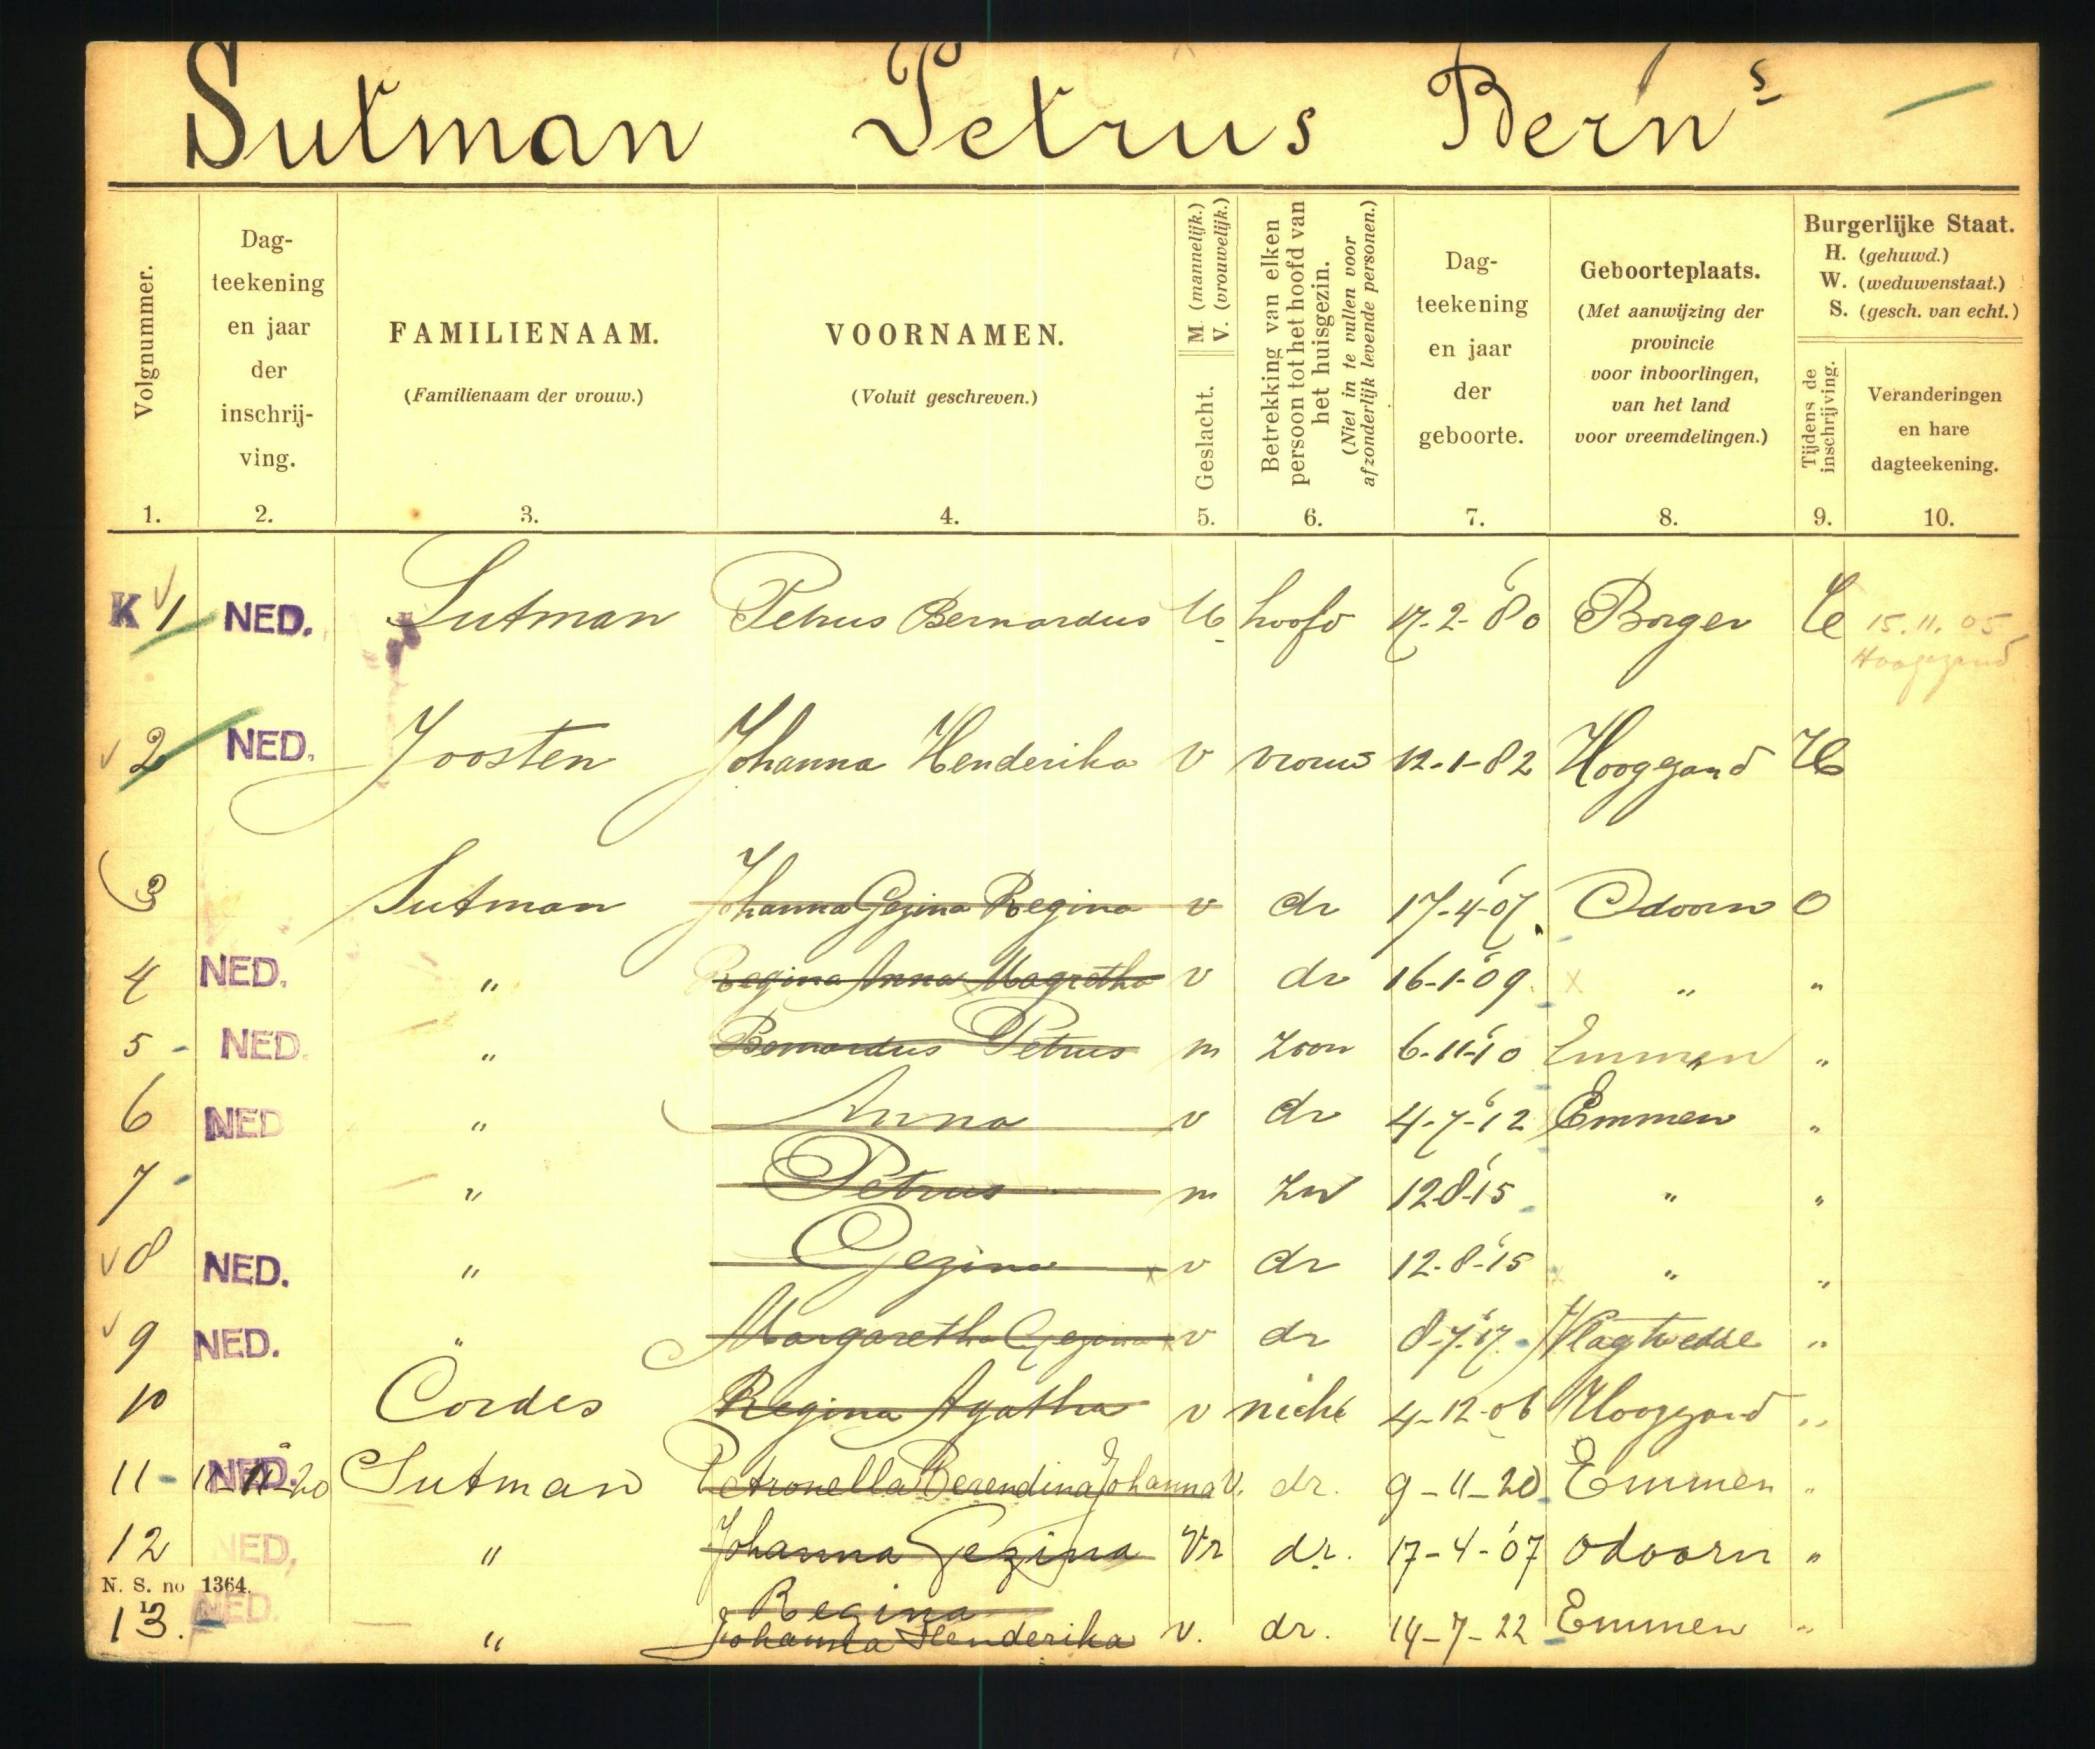 Sutman Petrus Bern s
Volgnummer.
Dag-
teekening
en jaar
der
inschrij-
ving.
FAMILIENAAM.
(Familienaam der vrouw.)
VOORNAMEN.
(Voluit geschreven.)
M (mannelijk.)
V. (vrouwelijk.)
Geslacht.
Betrekking van elken
persoon tot het hoofd van
het huisgezin.
(Niet in te vullen voor
afzonderlijk levende personen.)
Dag-
teekening
en jaar
der
geboorte.
Geboorteplaats.
(Met aanwijzing der
provincie
voor inboorlingen,
van het land
voor vreemdelingen.)
Burgerlijke Staat.
H. (gehuwd.)
W. (weduwenstaat.)
S. (gesch. van echt.)
Tijdens de
inschrijving.
Veranderingen
en hare
dagteekening.
1. 2. 3. 4. 5. 6. 7. 8. 9. 10.
K 1 NED. Sutman Petrus Bernardus M hoofd 17-2-80 Borger H 15.11.05
Hoogezand
2 NED. Joosten Johanna Henderika v vrouw 12-1-82 Hoogezand H
3 Sutman Johanna Gezina Regina v dr 17-4-07 Odoorn O
4 NED. " Regina Anna Magretha v dr 16-1-09 " "
5 - NED. " Bernardus Petrus m zoon 6-11-10 Emmen "
6 NED " Anna v dr 4-7-12 Emmen "
7 - " Petrus m zn 12-8-15 " "
8 NED. " Gezina v dr 12-8-15 " "
9 NED. " Margaretha Gezina v dr 8-7-17 Vlagtwedde "
10 Cordes Regina Agatha v nicht 4-12-06 Hoogezand "
11 - NED. 11-20 Sutman Petronella Berendina Johanna V. dr. 9-11-20 Emmen "
12 NED. " Johanna Gezina Vr dr. 17-4-07 Odoorn "
N. S. no 1364.
Regina
13. NED. " Johanna Henderika v. dr. 14-7-22 Emmen "